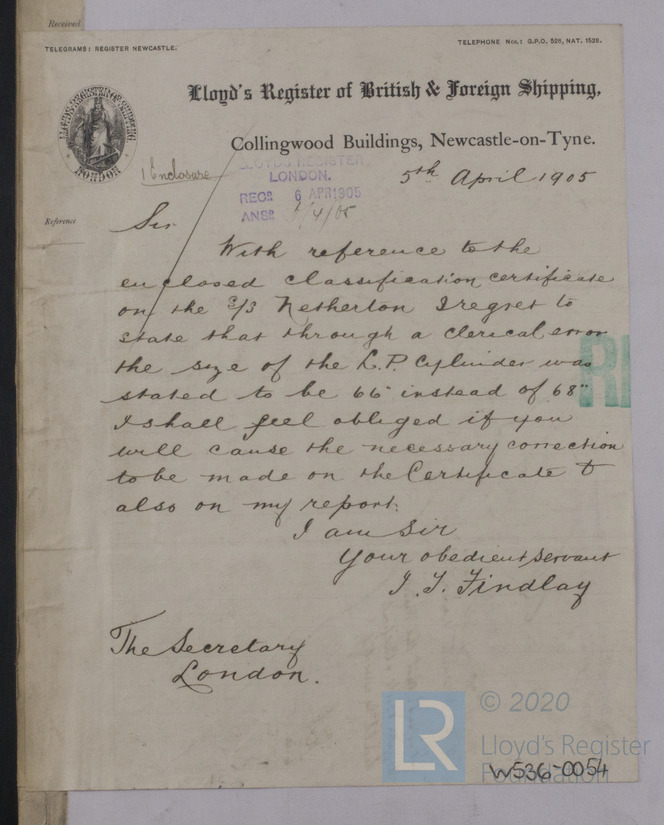 Received
TELEGRAMS: REGISTER NEWCASTLE.
TELEPHONE Nos.: G.P.O. 528, NAT. 1528.
Lloyd's Register of British & Foreign Shipping,
Collingwood Buildings, Newcastle-on-Tyne.
LLOYD'S REGISTER
LONDON
1 Enclosure
LLOYD'S REGISTER,
LONDON.
RECD. 6 APR 1905
ANSD. /4/05
5th April 1905
Reference
Sir
With reference to the
enclosed classification certificate
on the S/S Netherton I regret to
state that through a clerical error
the size of the L.P. Cylinder was
stated to be 66" instead of 68"
I shall feel obliged if you
will cause the necessary correction
to be made on the Certificate &
also on my report.
I am Sir
Your obedient servant
J. T. Findlay
The Secretary
London.
LR
© 2020
Lloyd's Register
Foundation
W536-0054